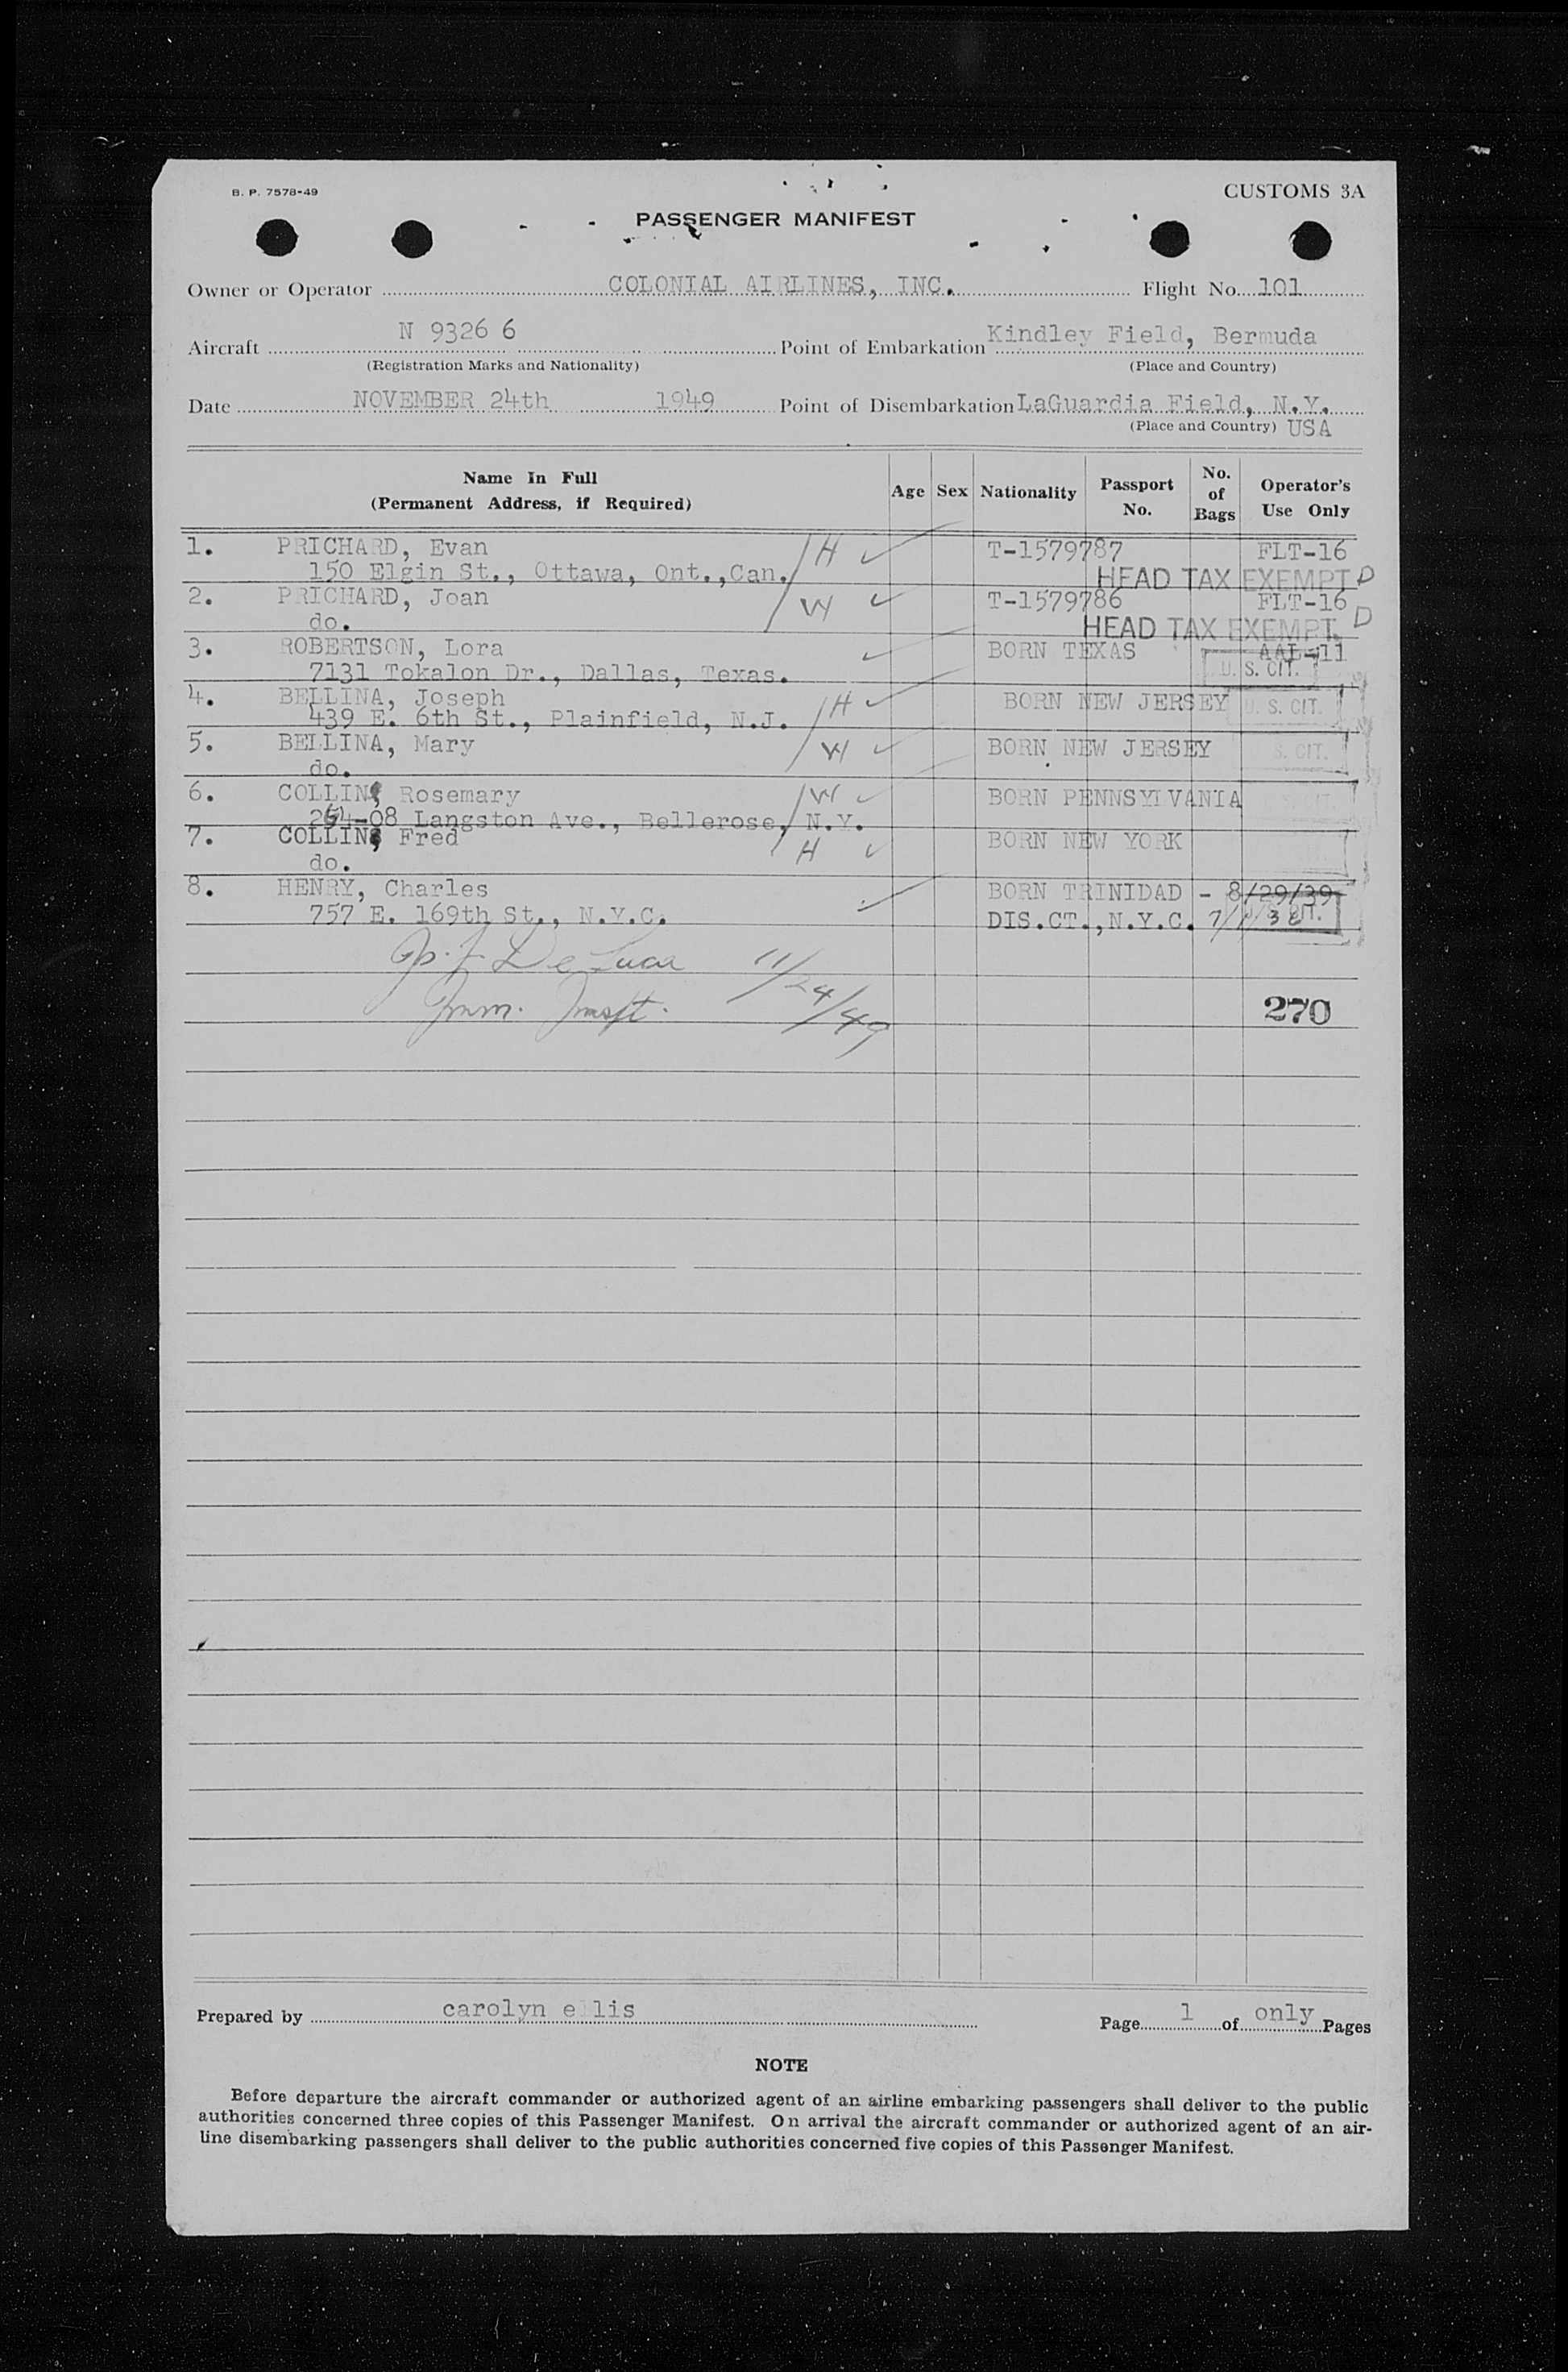 B. P. 7578-49
CUSTOMS 3A
PASSENGER MANIFEST
Owner or Operator COLONIAL AIRLINES, INC. Flight No. 101
Aircraft N 9326 6 Point of Embarkation Kindley Field, Bermuda
(Registration Marks and Nationality) (Place and Country)
Date NOVEMBER 24th 1949 Point of Disembarkation LaGuardia Field, N.Y.
(Place and Country) USA
Name In Full (Permanent Address, if Required) Age Sex Nationality Passport No. No. of Bags Operator's Use Only
1. PRICHARD, Evan H T-1579787 FLT-16
150 Elgin St., Ottawa, Ont.,Can. HEAD TAX EXEMPT D
2. PRICHARD, Joan W T-1579786 FLT-16
do. HEAD TAX EXEMPT D
3. ROBERTSON, Lora BORN TEXAS AAL-11
7131 Tokalon Dr., Dallas, Texas. U. S. CIT.
4. BELLINA, Joseph H BORN NEW JERSEY U. S. CIT.
439 E. 6th St., Plainfield, N.J.
5. BELLINA, Mary W BORN NEW JERSEY S. CIT.
do.
6. COLLINS, Rosemary W BORN PENNSYLVANIA
264-08 Langston Ave., Bellerose, N.Y.
7. COLLINS, Fred H BORN NEW YORK
do.
8. HENRY, Charles BORN TRINIDAD - 8/29/39
757 E. 169th St., N.Y.C. DIS.CT.,N.Y.C. 7/1/38
De Luca 11/24/49
Imm. Inspt. 270
Prepared by carolyn ellis Page 1 of only Pages
NOTE
Before departure the aircraft commander or authorized agent of an airline embarking passengers shall deliver to the public
authorities concerned three copies of this Passenger Manifest. On arrival the aircraft commander or authorized agent of an air-
line disembarking passengers shall deliver to the public authorities concerned five copies of this Passenger Manifest.